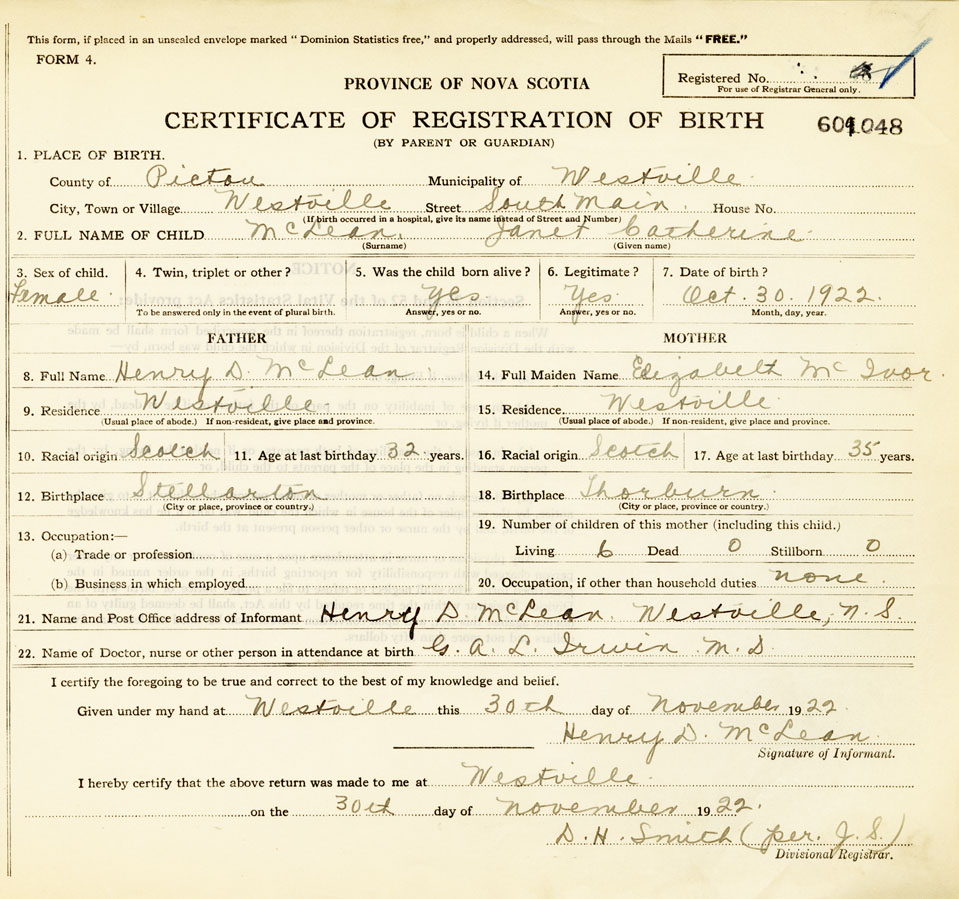 This form, if placed in an unsealed envelope marked "Dominion Statistics free," and properly addressed, will pass through the Mails "FREE."
FORM 4.
Registered No.
For use of Registrar General only.
PROVINCE OF NOVA SCOTIA
CERTIFICATE OF REGISTRATION OF BIRTH
(BY PARENT OR GUARDIAN)
1. PLACE OF BIRTH.
County of Pictou Municipality of Westville
City, Town or Village Westville Street South Main. House No.
(If birth occurred in a hospital, give its name instead of Street and Number)
2. FULL NAME OF CHILD McLean. Janet Catherine
(Surname) (Given name)
3. Sex of child. 4. Twin, triplet or other? 5. Was the child born alive? 6. Legitimate? 7. Date of birth?
Female. Yes Yes Oct. 30. 1922.
To be answered only in the event of plural birth. Answer, yes or no. Answer, yes or no. Month, day, year.
FATHER MOTHER
8. Full Name Henry D. McLean 14. Full Maiden Name Elizabeth McIvor.
9. Residence Westville. 15. Residence. Westville
(Usual place of abode.) If non-resident, give place and province. (Usual place of abode.) If non-resident, give place and province.
10. Racial origin Scotch 11. Age at last birthday 32 years. 16. Racial origin Scotch 17. Age at last birthday 35 years.
12. Birthplace Stellarton 18. Birthplace Thorburn.
(City or place, province or country.) (City or place, province or country.)
19. Number of children of this mother (including this child.)
13. Occupation:—
(a) Trade or profession Living 6 Dead 0 Stillborn 0
(b) Business in which employed 20. Occupation, if other than household duties none.
21. Name and Post Office address of Informant Henry D. McLean. Westville, N.S.
22. Name of Doctor, nurse or other person in attendance at birth G. A. L. Irwin M.D.
I certify the foregoing to be true and correct to the best of my knowledge and belief.
Given under my hand at Westville this 30th day of November 1922.
Henry D. McLean.
Signature of Informant.
I hereby certify that the above return was made to me at Westville.
on the 30th day of November 1922.
D. H. Smith (per. J. S.)
Divisional Registrar.